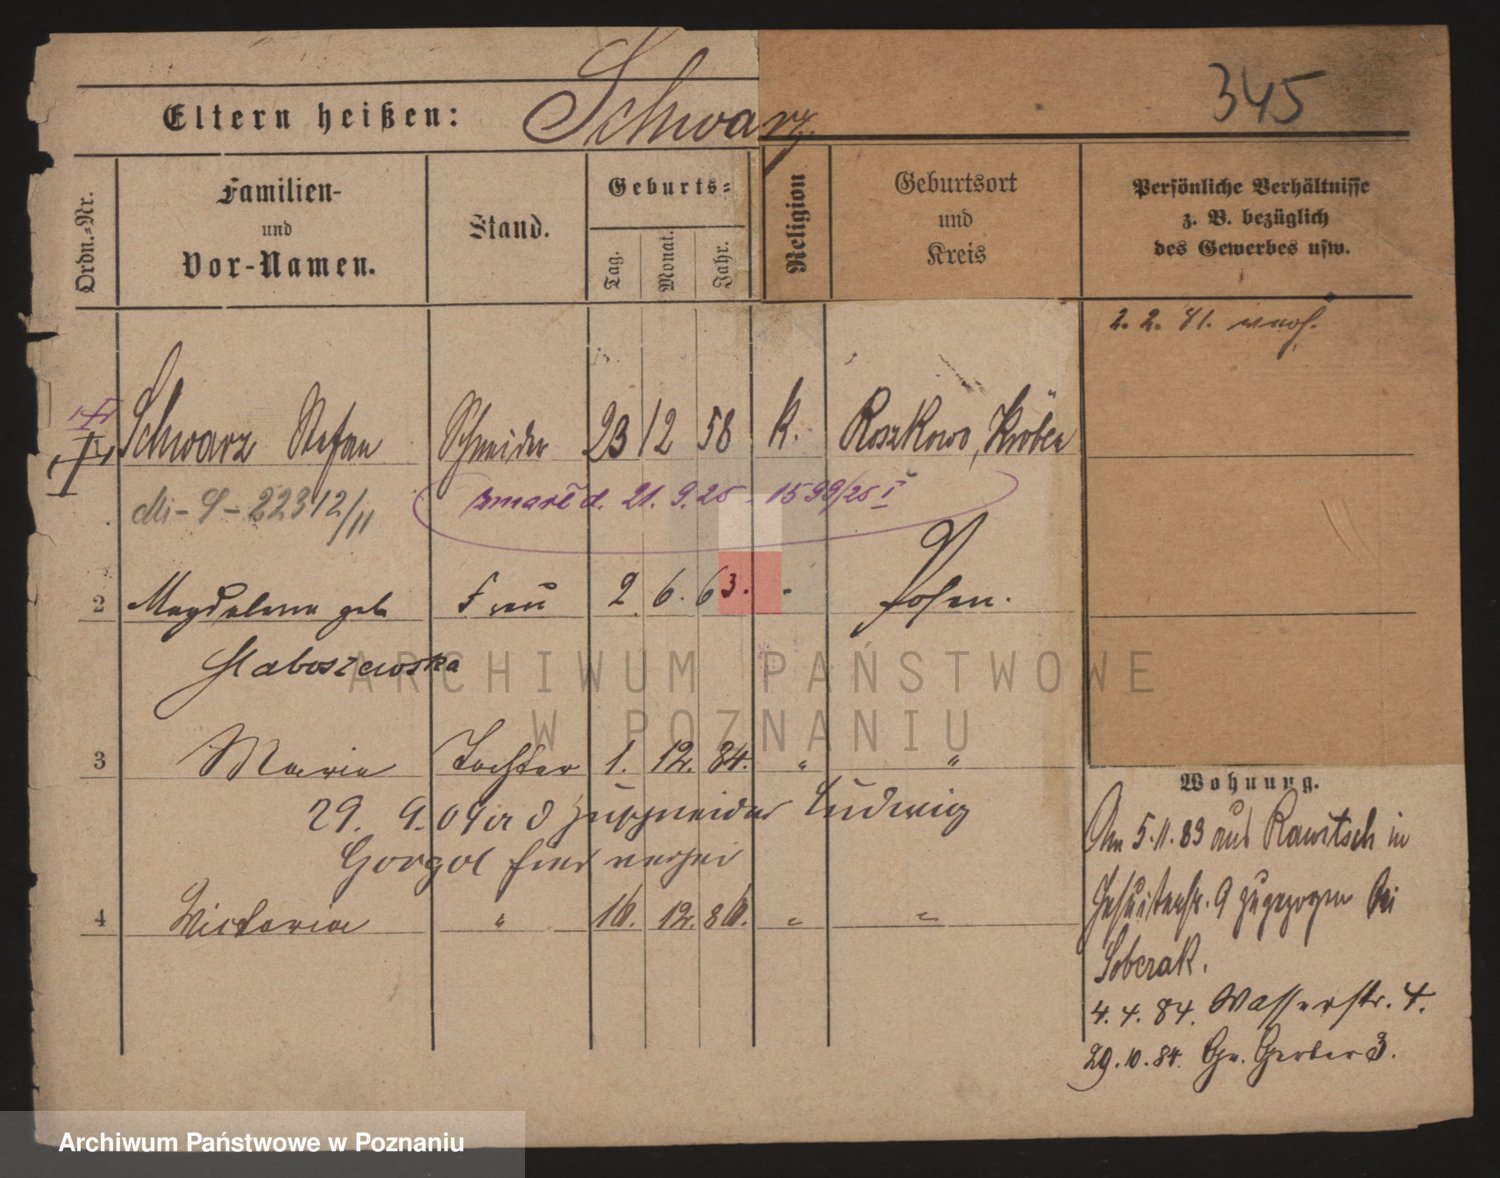 345
Eltern heißen: Schwarz.
Ordn.-Nr.
Familien-
und
Vor-Namen.
Stand.
Geburts-
Tag.
Monat.
Jahr.
Religion
Geburtsort
und
Kreis
Persönliche Verhältnisse
z. B. bezüglich
des Gewerbes usw.
2. 2. 81.
Schwarz Stefan Schneider 23 12 58 k. Roszkowo, Kröben
zmarł d. 21. 9. 25 - 1599/25 I
2 Magdalena geb Frau 2. 6. 63. - Posen.
Staboszewska
3 Marie Tochter 1. 12. 84. " "
29. 9. 09 Zuschneider Ludwig
Gorgol
4 Victoria " 16. 12. 86. " "
Wohnung.
Am 5.11.83 aus Rawitsch in
Jesuitenstr. 9 zugezogen bei
Sobczak.
4. 4. 84. Wasserstr. 4.
29. 10. 84. Gr. Gerber 3.
ARCHIWUM PAŃSTWOWE
W POZNANIU
Archiwum Państwowe w Poznaniu